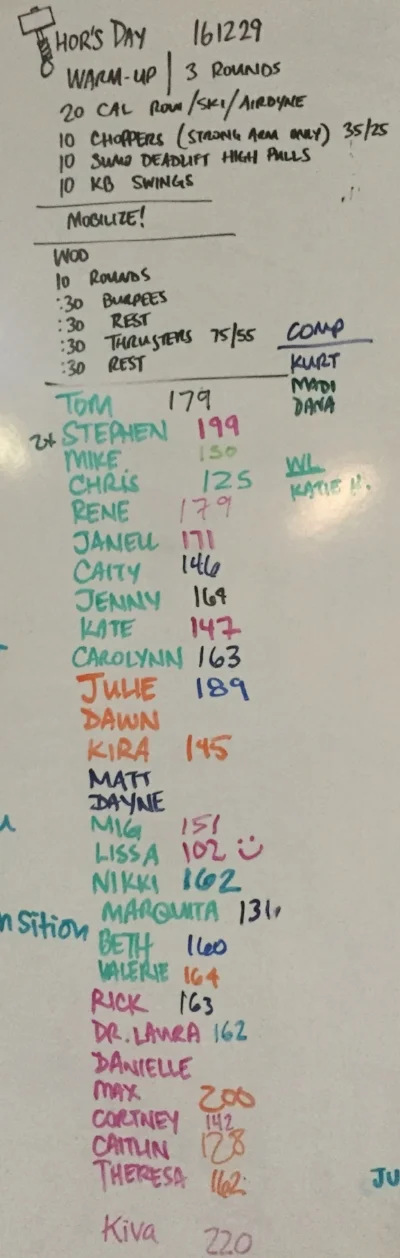 THOR'S DAY 161229
WARM-UP | 3 ROUNDS
20 CAL ROW/SKI/AIRDYNE
10 CHOPPERS (STRONG ARM ONLY) 35/25
10 SUMO DEADLIFT HIGH PULLS
10 KB SWINGS
MOBILIZE!
WOD
10 ROUNDS
:30 BURPEES
:30 REST
:30 THRUSTERS 75/55
:30 REST
COMP
KURT
MADI
DANA
WL
KATIE H.
TOM 179
STEPHEN 199
MIKE 150
CHRIS 125
RENE 179
JANELL 171
CAITY 146
JENNY 169
KATE 147
CAROLYNN 163
JULIE 189
DAWN
KIRA 145
MATT
DAYNE
MIG 151
LISSA 102
NIKKI 162
MARQUITA 131
nsition
BETH 160
VALERIE 164
RICK 163
DR. LAURA 162
DANIELLE
MAX 200
CORTNEY 142
CAITLIN 128
THERESA 162
JU
Kiva 220